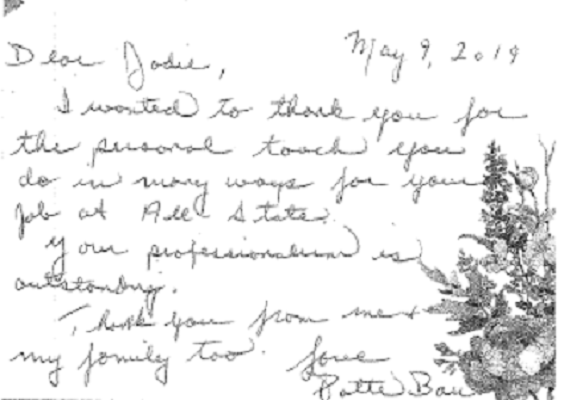 May 9, 2019
Dear Jodie,
I wanted to thank you for
the personal touch you
do in many ways for your
job at All State.
Your professionalism is
outstanding.
Thank you from me &
my family too. Love